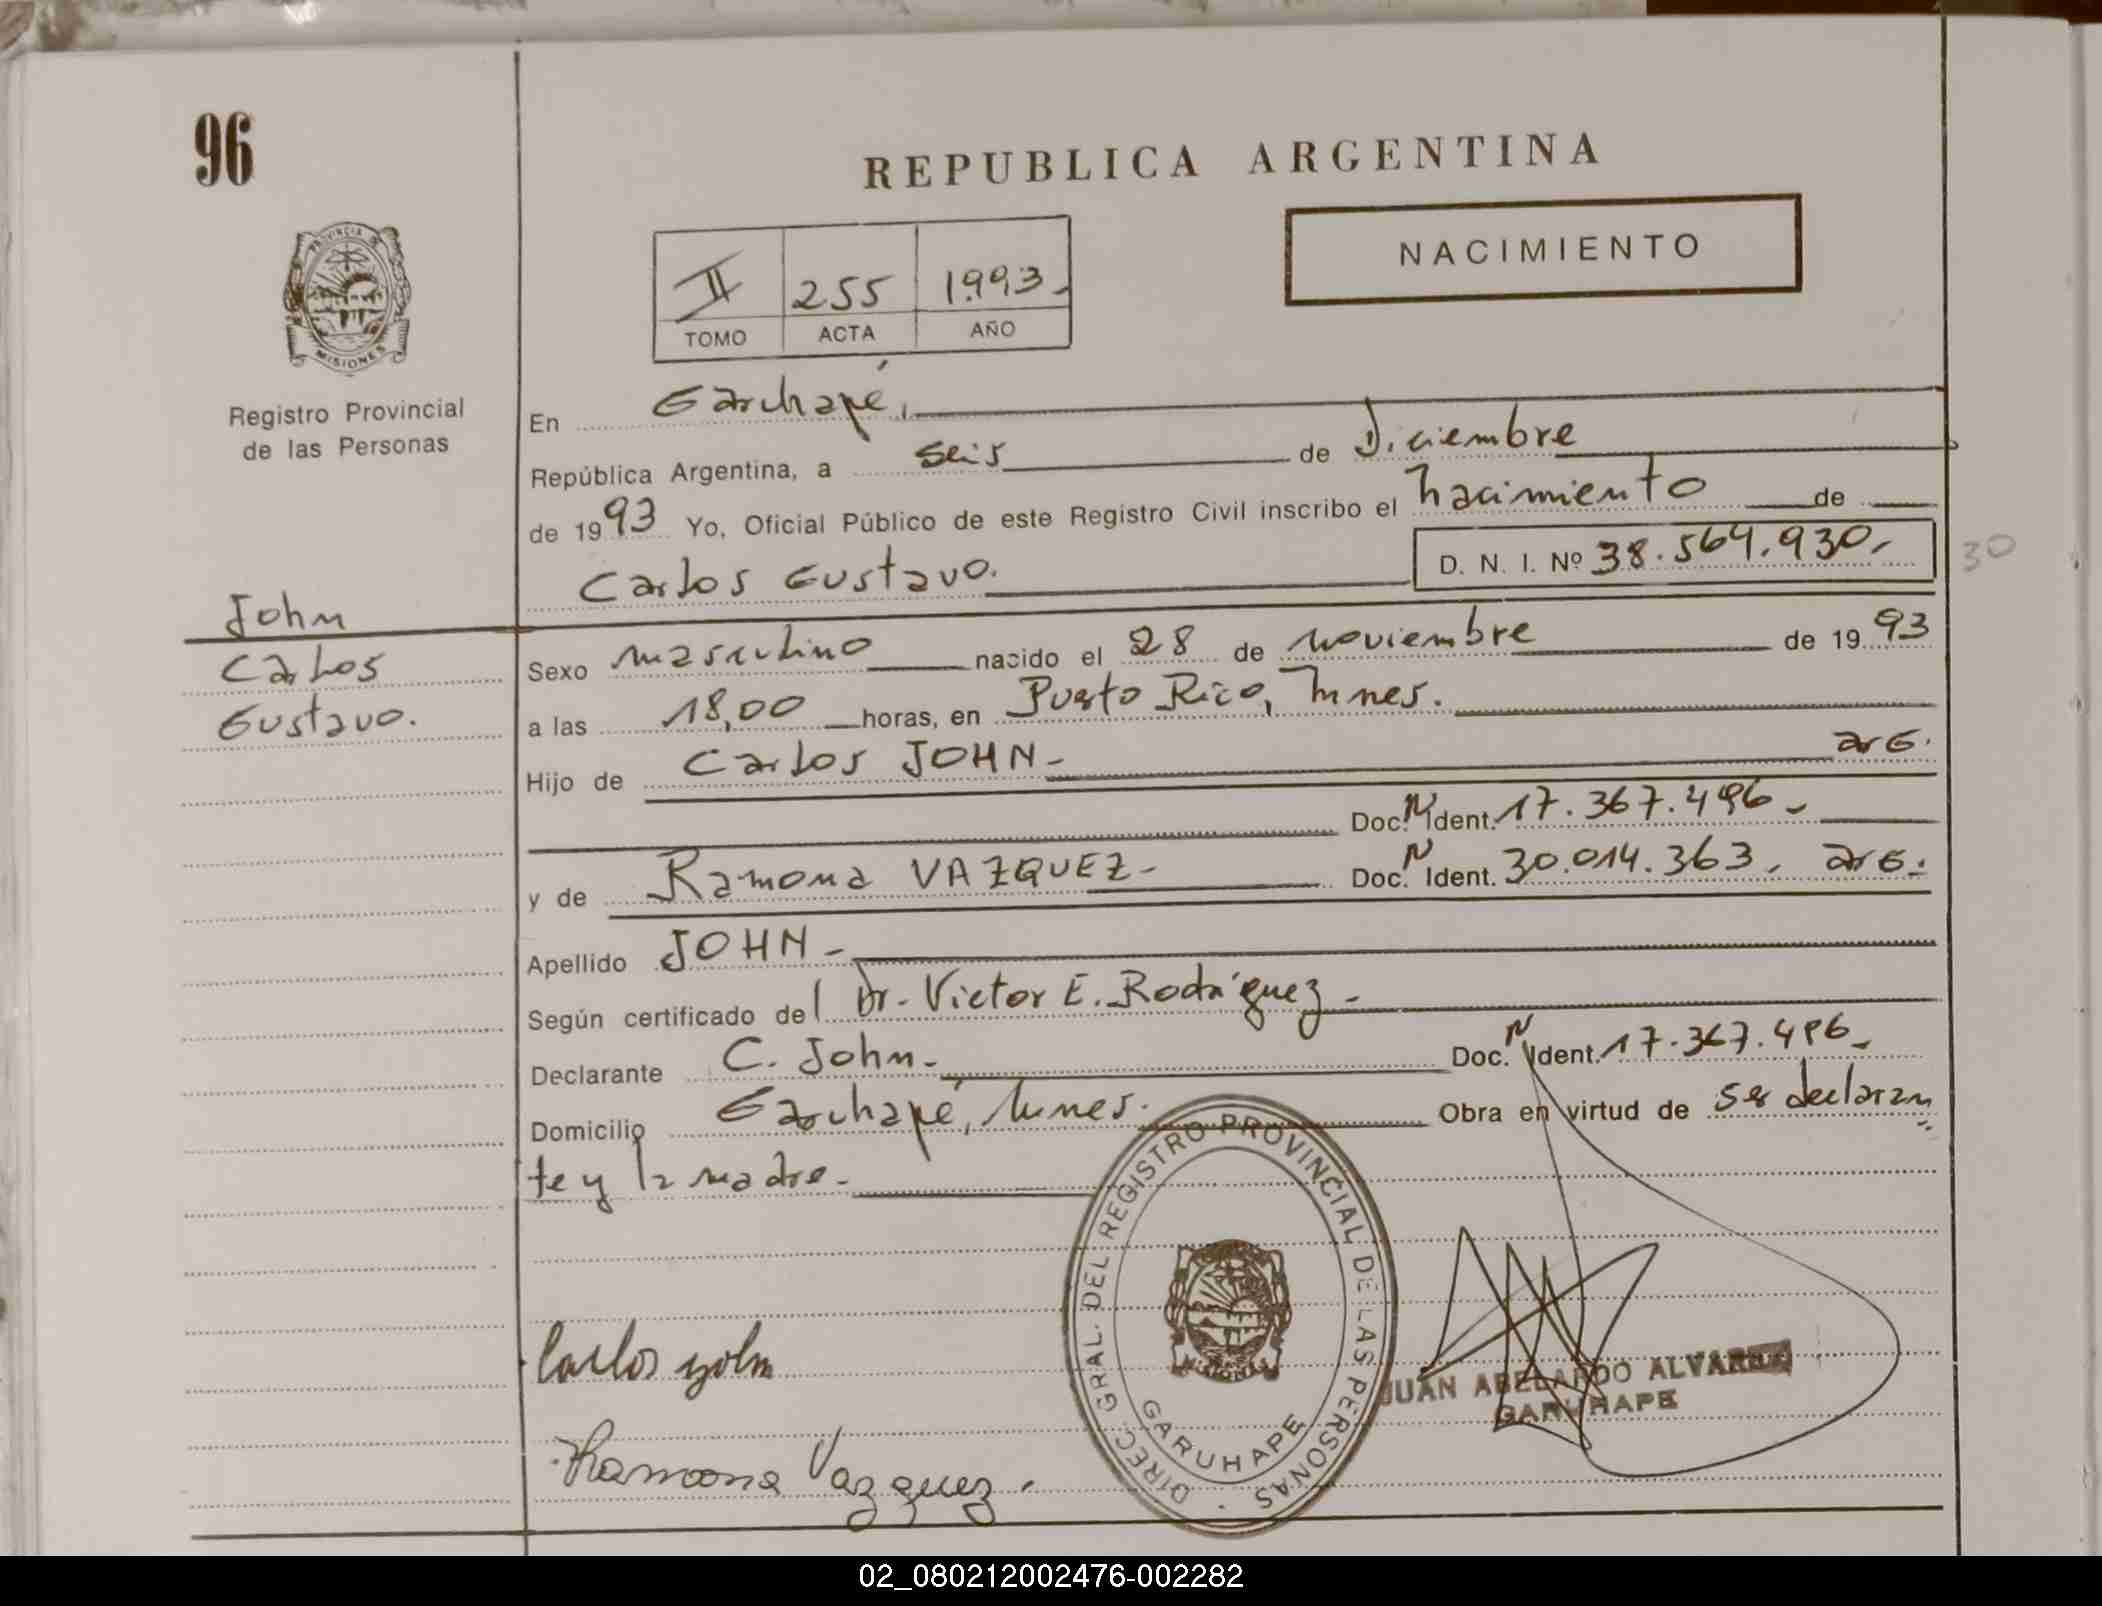 96
REPUBLICA ARGENTINA
NACIMIENTO
II 255 1993.
TOMO ACTA AÑO
PROVINCIA DE
MISIONES
Registro Provincial
de las Personas
En Garuhapé,
República Argentina, a seis de Diciembre
de 1993 Yo, Oficial Público de este Registro Civil inscribo el nacimiento de
Carlos Gustavo. D. N. I. Nº 38.564.930.-
30
John
Carlos
Gustavo.
Sexo masculino nacido el 28 de noviembre de 1993
a las 18,00 horas, en Puerto Rico, Mnes.
Hijo de Carlos JOHN- arG.
Doc. N Ident. 17.367.496-
y de Ramona VAZQUEZ- Doc. N Ident. 30.014.363, arG.
Apellido JOHN-
Según certificado del Dr. Victor E. Rodríguez-
Declarante C. John- Doc. N Ident. 17.367.496-
Domicilio Garuhapé, Mnes. Obra en virtud de ser declaran
te y la madre-
DIREC. GRAL. DEL REGISTRO PROVINCIAL DE LAS PERSONAS
MISIONES
GARUHAPE
Carlos John
JUAN ABELARDO ALVAREZ
GARUHAPE
Ramona Vazquez.
02_080212002476-002282